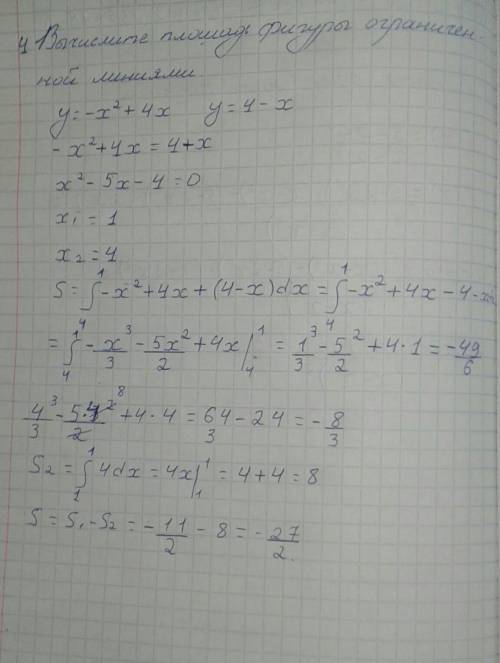 4 Вычислите площадь фигуры ограничен-
ной линиями
y = -x² + 4x y = 4 - x
- x² + 4x = 4 + x
x² - 5x - 4 = 0
x₁ = 1
x₂ = 4
S = ∫₄¹ -x² + 4x + (4-x)dx = ∫₄¹ -x² + 4x - 4 -
= ∫₄¹ -x³/3 - 5x²/2 + 4x |₄¹ = 1³/3 - 5²/2 + 4·1 = -49/6
4³/3 - 5·4²/2 ⁸ + 4·4 = 64/3 - 24 = -8/3
S₂ = ∫₁¹ 4dx = 4x|₁¹ = 4 + 4 = 8
S = S₁ - S₂ = -11/2 - 8 = -27/2.